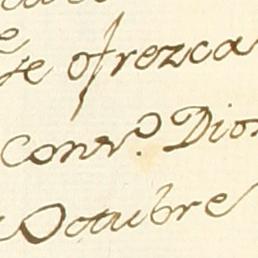 ofrezca
Conv.º Dio
Octubre